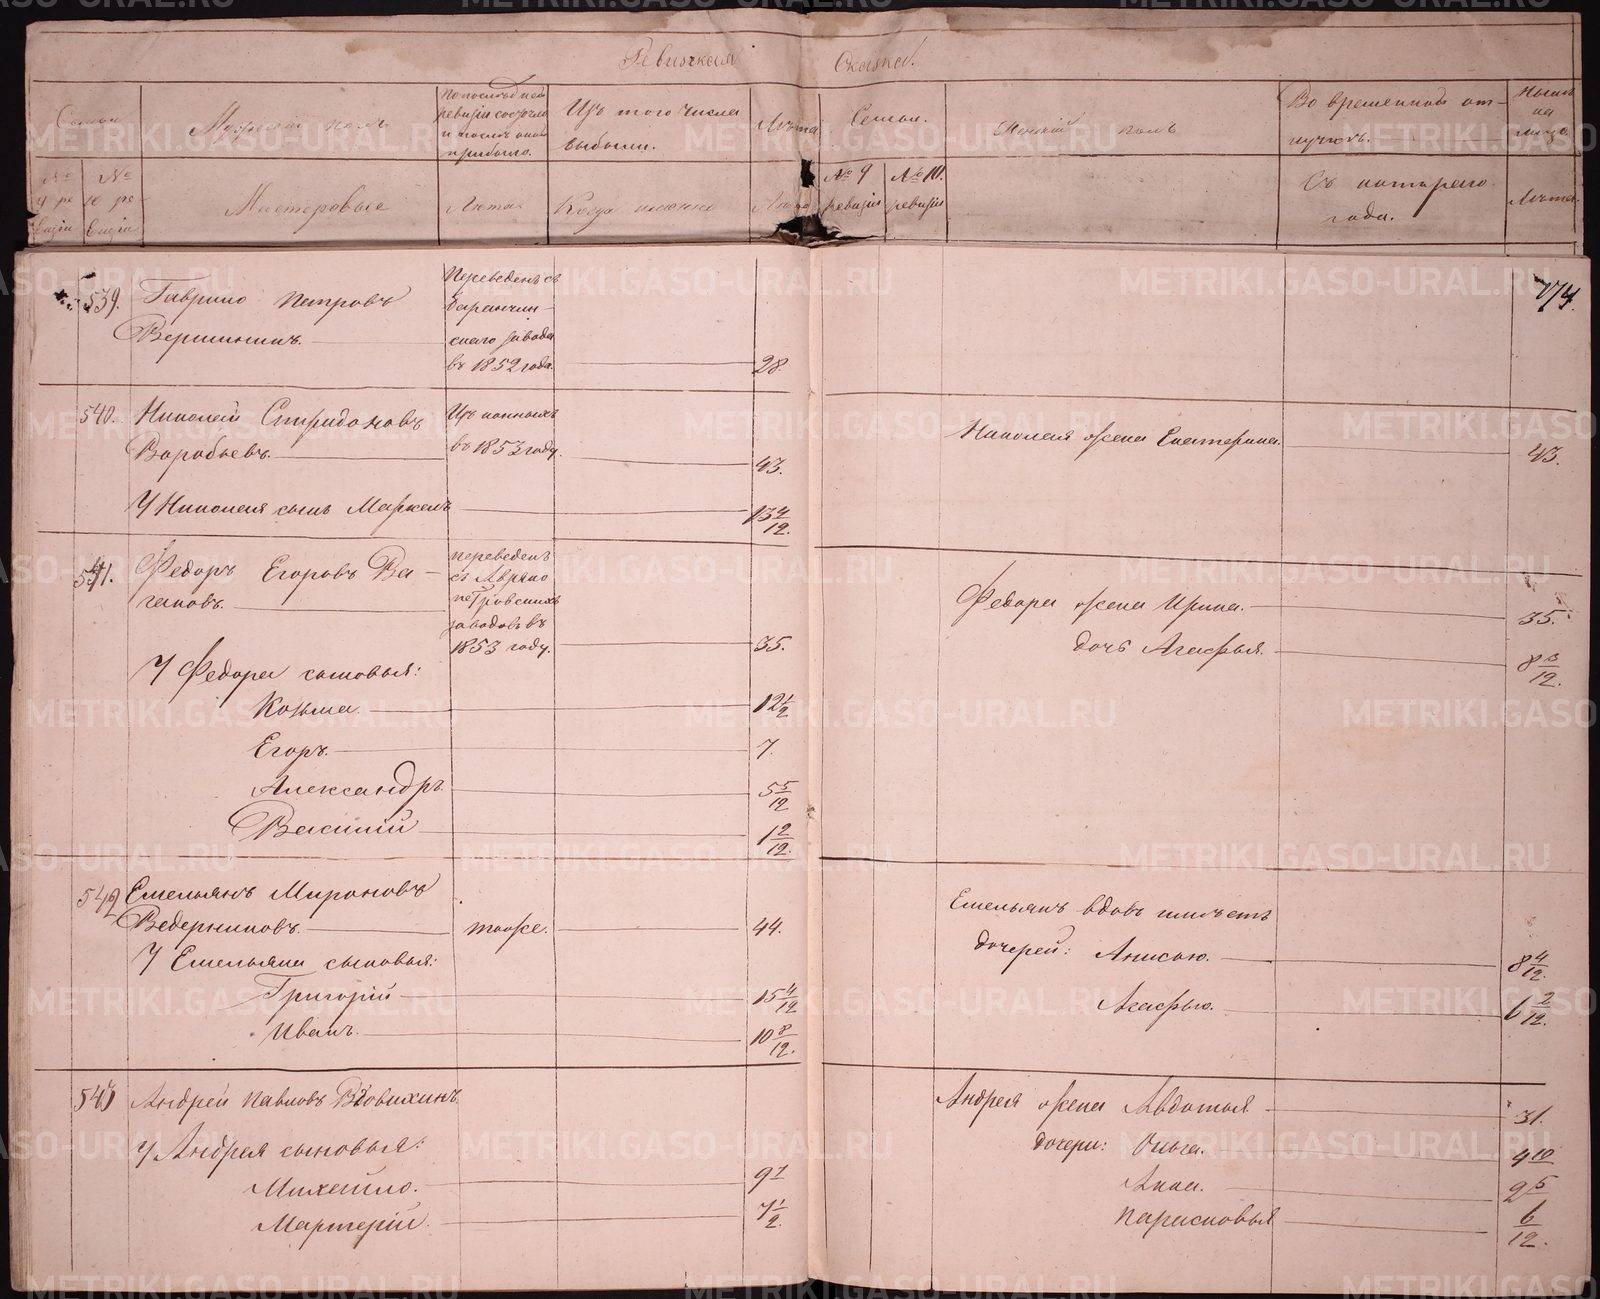 Ревижская Сказка.
Семьи
Мужескій полъ
По последней
ревизіи состояло
и после оной
прибыло.
Изъ того числа
выбыли.
Лѣта
Семьи.
Женскій полъ
Во временной от-
лучкѣ.
Нынѣ
на
лицо
№ 9 ре
визіи
№ 10 ре
визіи
Мастеровые
Лѣта
Когда именно
Лѣта
№ 9
ревизіи
№ 10.
ревизіи
Съ котораго
года.
Лѣта.
174.
539.
Гаврило Петровъ
Вершининъ.
Переведенъ съ
Баранчин-
скаго завода
въ 1852 года.
28
540.
Николай Спиридоновъ
Воробьевъ.
Изъ конныхъ
въ 1853 году.
43.
У Николая сынъ Маркелъ
13 4/12.
Николая жена Екатерина.
43.
541.
Федоръ Егоровъ Ва-
гановъ.
переведенъ
съ Авряно
петровскихъ
заводовъ въ
1853 году.
35.
У Федора сыновья:
Козьма.
12 1/2
Егоръ.
7.
Александръ.
5 5/12
Василій
1 2/12.
Федора жена Ирина.
35.
дочь Агафья.
8 3/12.
542
Емельянъ Мироновъ
Ведерниковъ.
тоже.
44.
У Емельяна сыновья:
Григорій
15 4/12
Иванъ.
10 8/12.
Емельянъ вдовъ имѣетъ
дочерей: Анисью.
8 4/12.
Агафью.
6 2/12.
543
Андрей Павловъ Вдовихинъ
У Андрея сыновья:
Михайло.
9 1
Мартерій.
7 1/2.
Андрея жена Авдотья
31.
дочери: Ольга.
4 10
Анна.
2 5
Парасковья
6/12.
METRIKI.GASO-URAL.RU